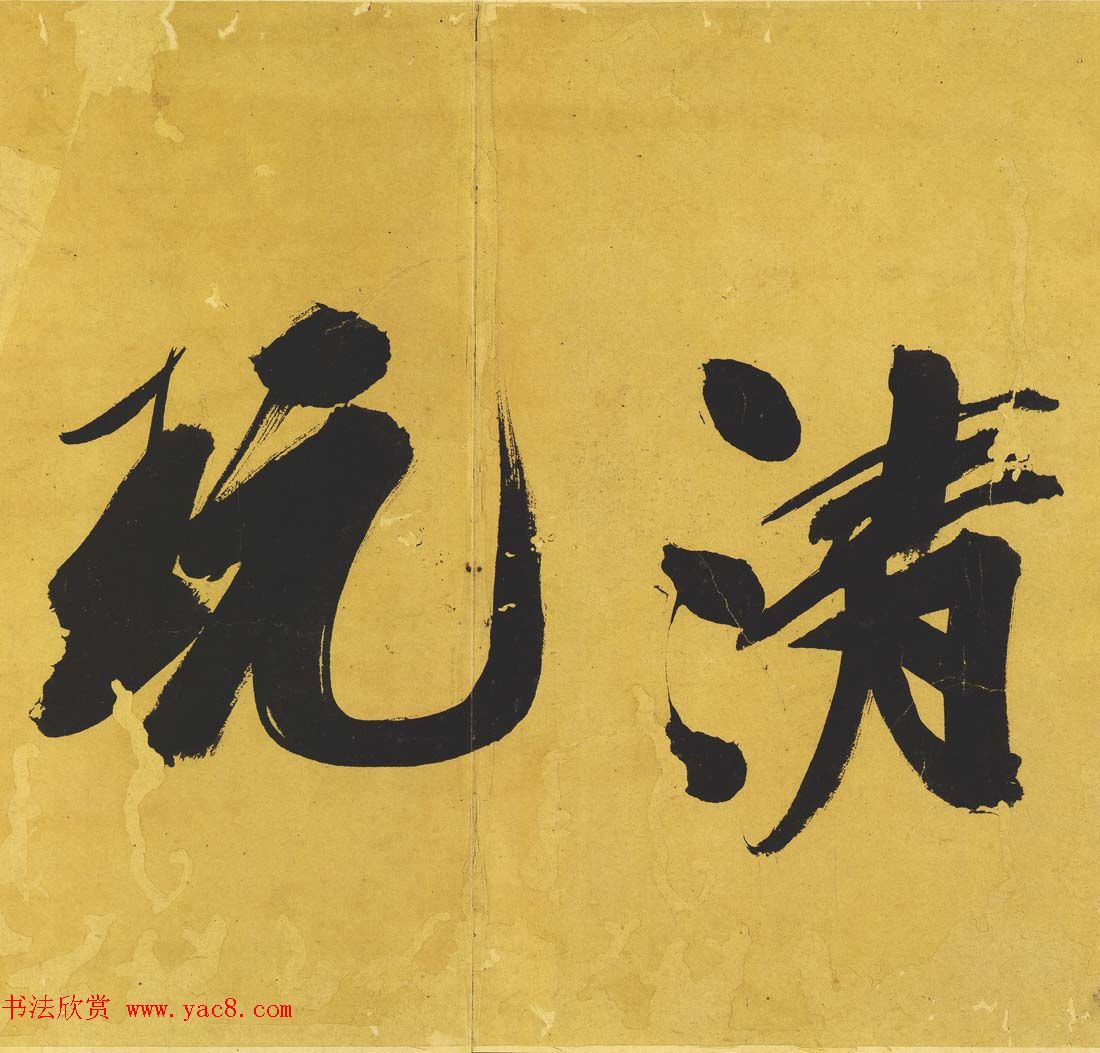 清玩
书法欣赏 www.yac8.com